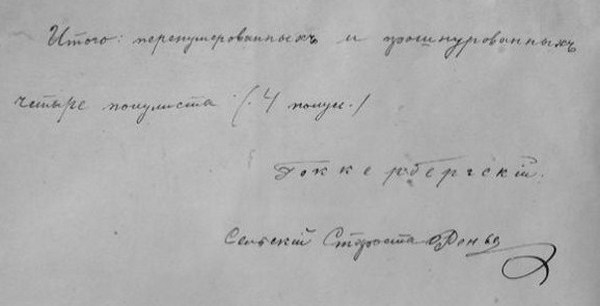 Итого: перенумерованныхъ и прошнурованныхъ
четыре полулиста (. 4 полул. )
Гоккербергскій.
Сельскій Староста